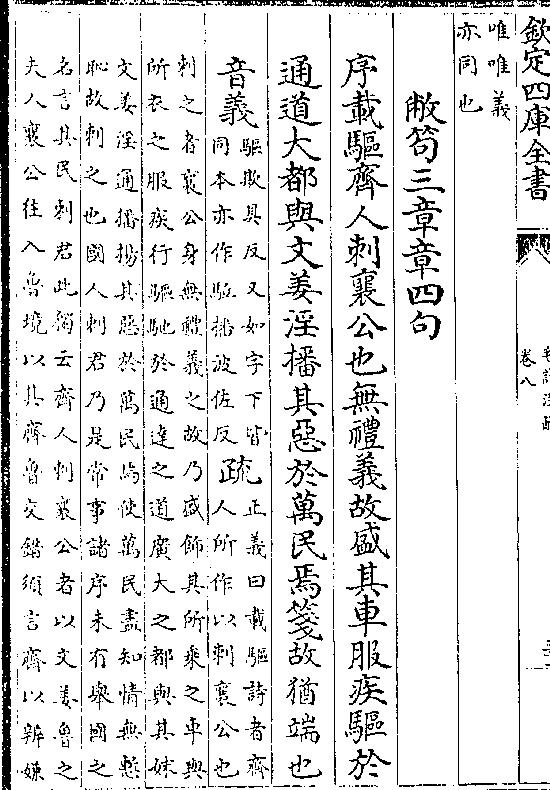 欽定四庫全書
卷八
唯唯義
亦同也
敝笱三章章四句
序載驅齊人刺襄公也無禮義故盛其車服疾驅於
通道大都與文姜淫播其惡於萬民焉箋故猶端也
音義驅欺具反又如字下皆
同本亦作駈播波佐反
疏正義曰載驅詩者齊
人所作以刺襄公也
刺之者襄公身無禮義之故乃盛飾其所乘之車與
所衣之服疾行驅馳於通達之道廣大之都與其妹
文姜淫通播揚其惡於萬民焉使萬民盡知情無慙
恥故刺之也國人刺君乃是常事諸序未有舉國之
名言其民刺君此獨云齊人刺襄公者以文姜魯之
夫人襄公往入魯境以其齊魯交錯須言齊以辨嫌